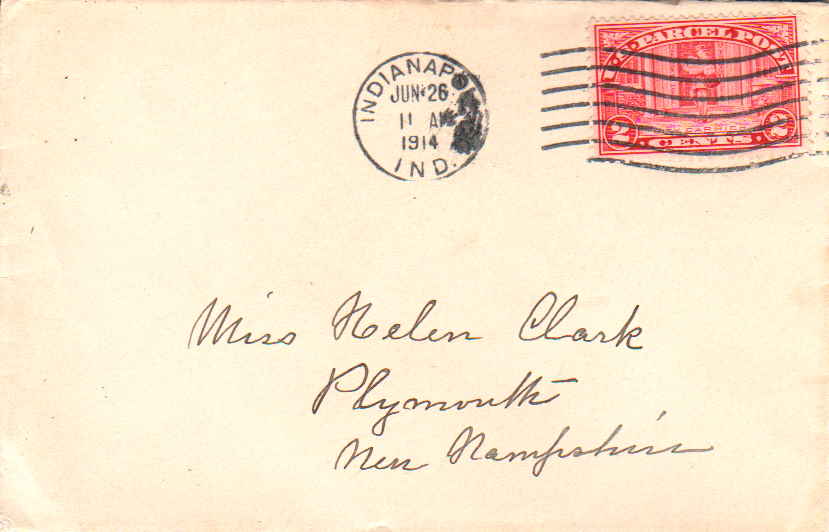 INDIANAPO
JUN 26
11 AM
1914
IND.
U.S. PARCEL POST
CITY CARRIER
2 CENTS 2
Miss Helen Clark
Plymouth
New Hampshire